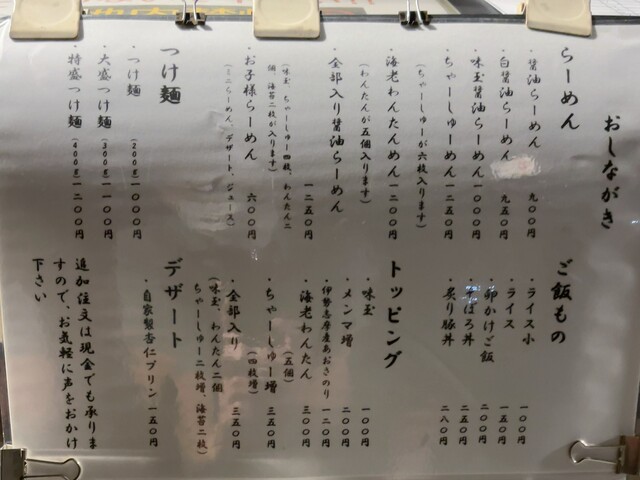 おしながき
らーめん
・醤油らーめん 九〇〇円
・白醤油らーめん 九五〇円
・味玉醤油らーめん 一〇〇〇円
・ちゃーしゅーめん 一二五〇円
（ちゃーしゅーが六枚入ります）
・海老わんたんめん 一二〇〇円
（わんたんが五個入ります）
・全部入り醤油らーめん 一二五〇円
（味玉、ちゃーしゅー四枚、わんたん二
個、海苔二枚が入ります）
・お子様らーめん 六〇〇円
（ミニらーめん、デザート、ジュース）
つけ麺
・つけ麺 （200g） 一〇〇〇円
・大盛つけ麺 （300g） 一一〇〇円
・特盛つけ麺 （400g） 一二〇〇円
ご飯もの
・ライス小 一〇〇円
・ライス 一五〇円
・卵かけご飯 二〇〇円
・そぼろ丼 二五〇円
・炙り豚丼 二八〇円
トッピング
・味玉 一〇〇円
・メンマ増 二〇〇円
・伊勢志摩産あおさのり 一二〇円
・海老わんたん （五個） 三〇〇円
・ちゃーしゅー増 （四枚増） 三五〇円
・全部入り 三五〇円
（味玉、わんたん二個
ちゃーしゅー二枚増、海苔二枚）
デザート
・自家製杏仁プリン 一五〇円
追加注文は現金でも承りま
すので、お気軽に声をおかけ
下さい